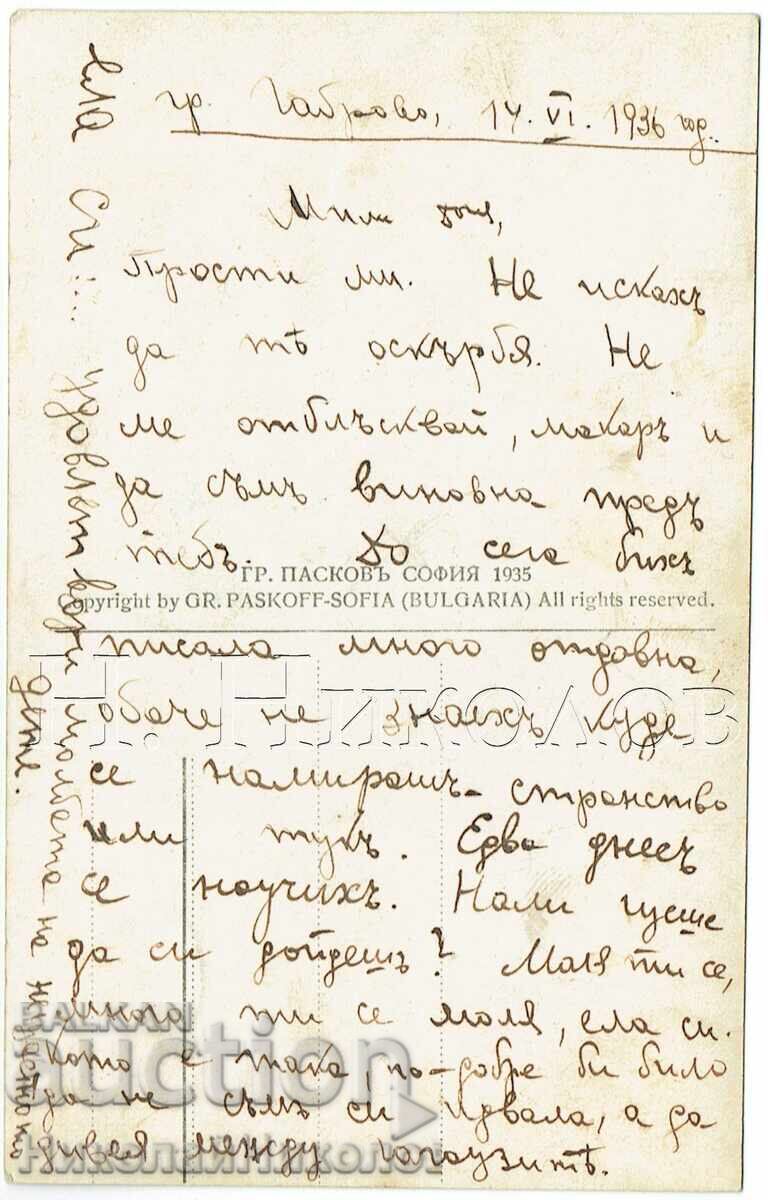 гр. Габрово, 14. VI. 1936 год.
Мили
Прости ми. Не искахъ
да тѣ оскърбя. Не
ме отблъсквай, макаръ и
да съмъ виновна предъ
тебъ. До сега бихъ
ГР. ПАСКОВЪ СОФИЯ 1935
Copyright by GR. PASKOFF-SOFIA (BULGARIA) All rights reserved.
писала много отдавна,
обаче не знаехъ кѫде
се намирашъ - странство
или тукъ. Едва днесъ
се научихъ. Нали
да си дойдешъ? Моля ти се,
много ти се моля, ела си.
Като е така, по-добре би било
да не съмъ си идвала, а да
живея между
ела си... молбата на
Н. НИКОЛОВ
BALKAN
auction
Николай Николов